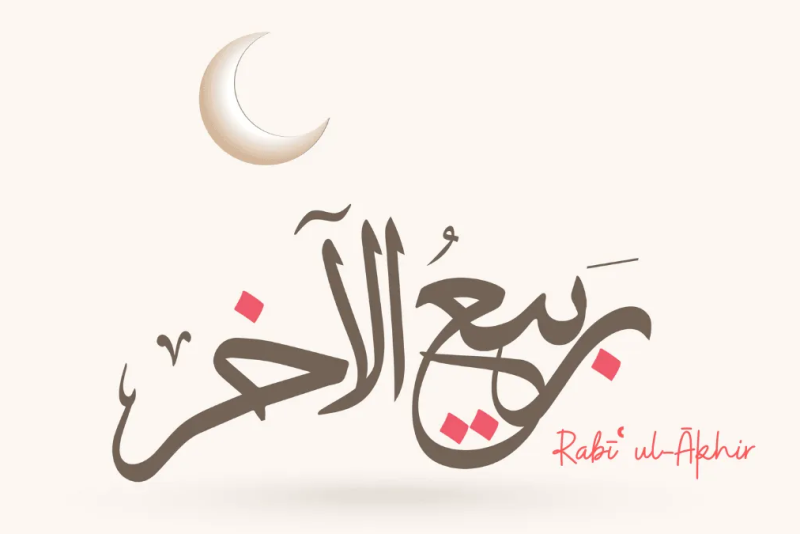 رَبيعُ الآخر
Rabīʿ ul-Ākhir